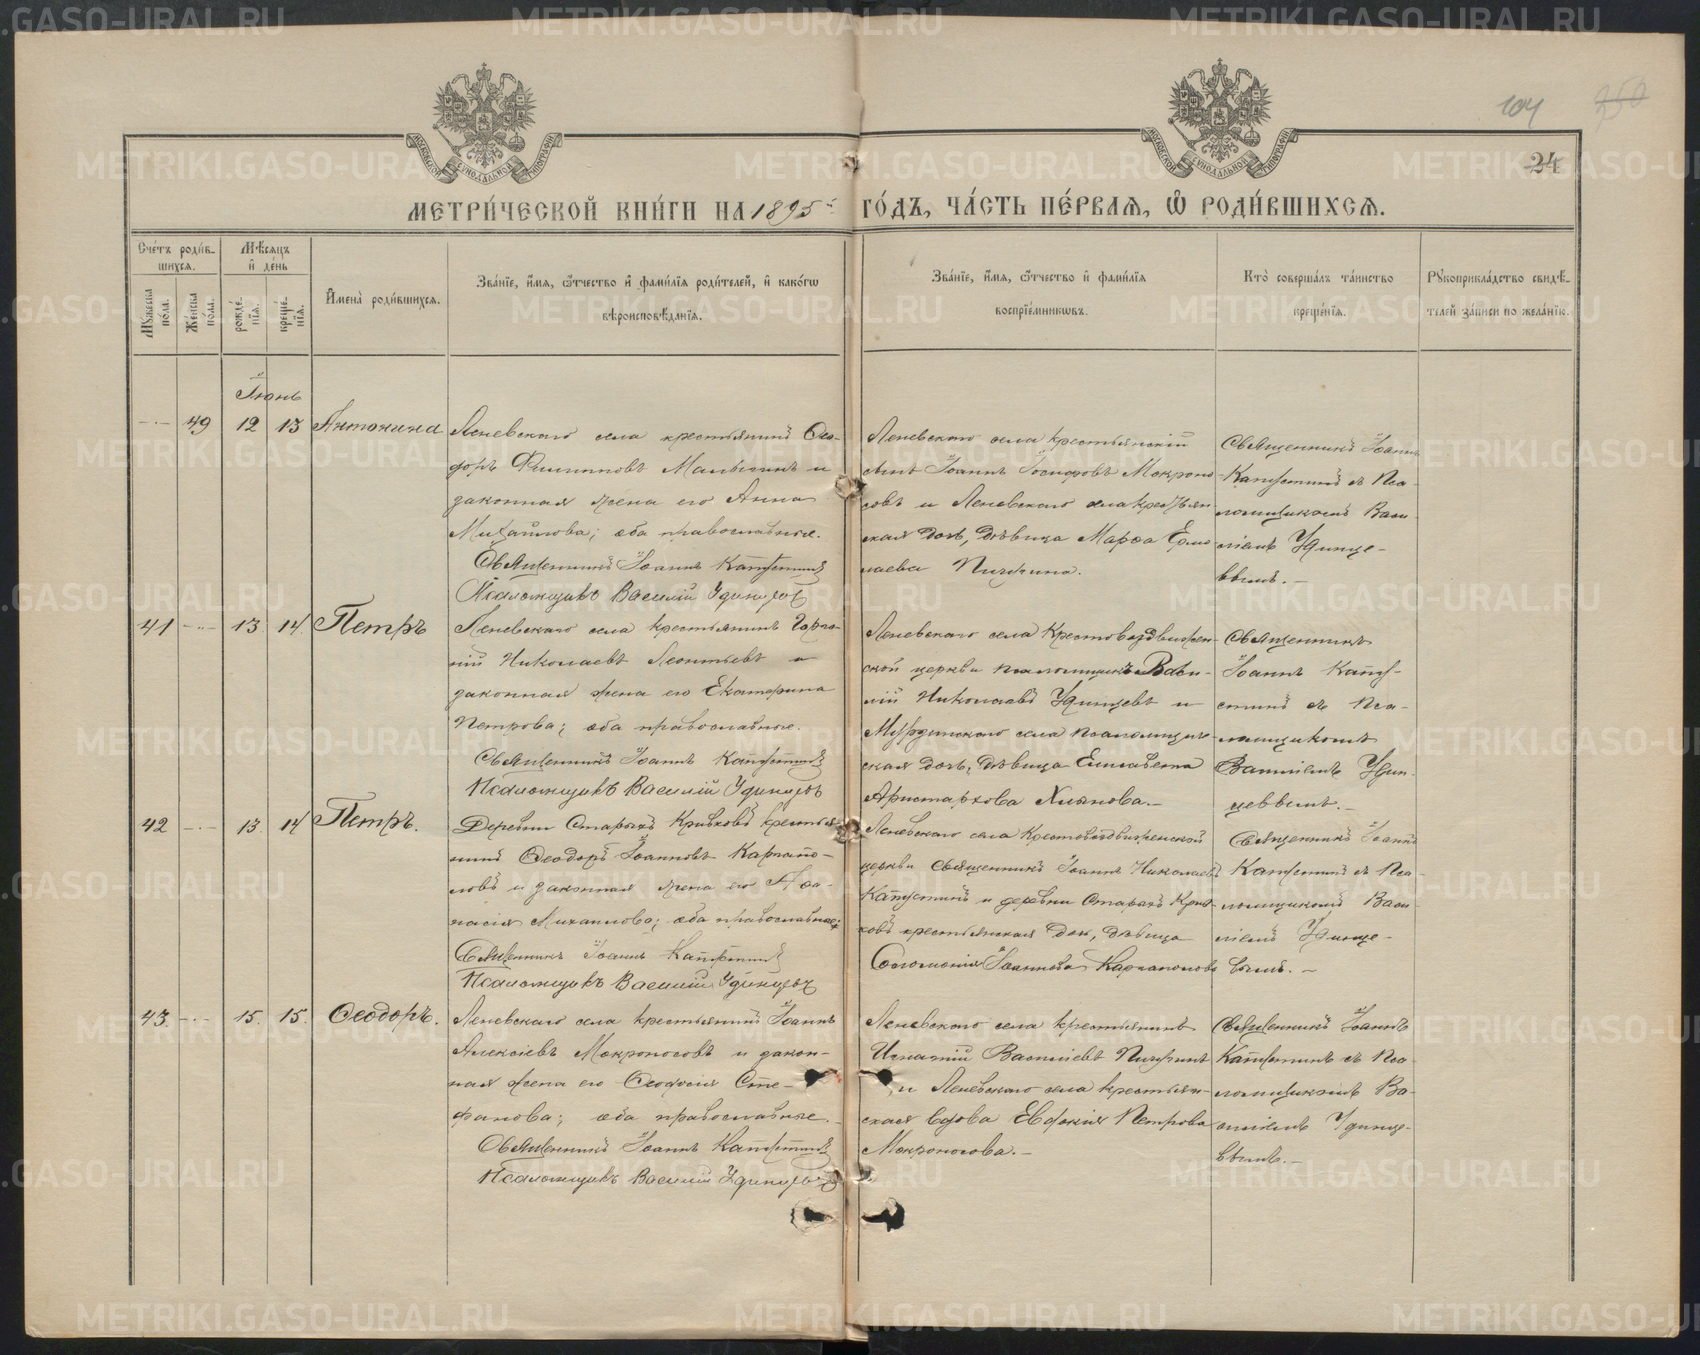 104 350
24
МЕТРИ́ЧЕСКОЙ КНИ́ГИ НА 1895 ГО́ДЪ, ЧА́СТЬ ПЕ́РВАЯ, Ѽ РОДИ́ВШИХСЯ.
Сче́тъ роди́в-
шихся.
Му́жеска по́ла.
Же́нска по́ла.
Мѣ́сяцъ
и҆ де́нь
рожде́-
нїя.
креще́-
нїя.
И҆мена̀ роди́вшихся.
Зва́нїе, и҆́мя, ѻ҆́тчество и҆ фами́лїя роди́телей, и҆ како́гѡ
вѣроисповѣ́данїя.
Зва́нїе, и҆́мя, ѻ҆́тчество и҆ фами́лїя
воспрїе́мникѡвъ.
Кто̀ соверша́лъ та́инство
креще́нїя.
Рꙋкоприкла́дство свидѣ́-
телей за́писи по жела́нїю.
Іюнь
49 12 13 Антонина
Леневскаго села крестьянинъ Ѳео-
доръ Филипповъ Мальгинъ и
законная жена его Анна
Михайлова; оба православные.
Священникъ Іоаннъ Капустинъ
Псаломщикъ Василій Удинцовъ
Леневскаго села крестьянскій
сынъ Іоаннъ Іосифовъ Мокроно-
совъ и Леневскаго села крестьян
ская дочь, дѣвица Марѳа Ермо
лаева Пичугина.
Священникъ Іоаннъ
Капустинъ съ Пса-
ломщикомъ Васи-
ліемъ Удинце-
вымъ.
41 13 14 Петръ
Леневскаго села крестьянинъ Горго-
ній Николаевъ Леонтьевъ и
законная жена его Екатерина
Петрова; оба православные.
Священникъ Іоаннъ Капустинъ
Псаломщикъ Василій Удинцовъ
Леневскаго села Крестовоздвижен-
ской церкви псаломщикъ Васи-
лій Николаевъ Удинцевъ и
села псаломщиче-
ская дочь, дѣвица Елисавета
Аристархова
Священникъ
Іоаннъ Капу-
стинъ съ Пса-
ломщикомъ
Василіемъ Удин-
цевымъ.
42 13 14 Петръ.
Деревни Старыхъ Кривковъ крестья-
нинъ Ѳеодоръ Іоанновъ Карпапо-
ловъ и законная жена его Аѳа-
насія Михаилова; оба православные.
Священникъ Іоаннъ Капустинъ
Псаломщикъ Василій Удинцовъ
Леневскаго села Крестовоздвиженской
церкви Священникъ Іоаннъ Николаевъ
Капустинъ и деревни Старыхъ Крив-
ковъ крестьянская дочь, дѣвица
Соломонія Іоаннова
Священникъ Іоаннъ
Капустинъ съ Пса-
ломщикомъ Васи-
ліемъ Удинце-
вымъ.
43 15 15 Ѳеодоръ.
Леневскаго села крестьянинъ Іоаннъ
Алексіевъ Мокроносовъ и закон-
ная жена его Ѳеодосія Сте-
фанова; оба православные.
Священникъ Іоаннъ Капустинъ
Псаломщикъ Василій Удинцовъ
Леневскаго села крестьянинъ
Игнатій Василіевъ Пичугинъ
и Леневскаго села крестьян-
ская вдова Евдокія Петрова
Мокроносова.
Священникъ Іоаннъ
Капустинъ съ Пса-
ломщикомъ Ва-
силіемъ Удинце-
вымъ.
METRIKI.GASO-URAL.RU